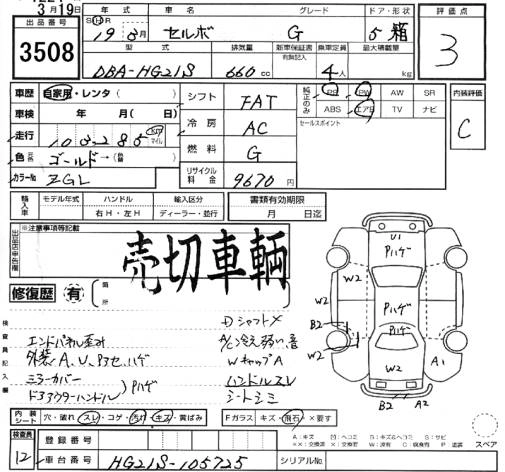 3月19日
出品番号
3508
年式 車名 グレード ドア・形状
S H 19年3月 セルボ G 5 箱
型式 排気量 新車保証書 乗車定員 最大積載量
有無記入
DBA-HG21S 660cc 4人 kg
評価点
3
車歴 自家用・レンタ( )
車検 年 月( 日)
走行 103285 km マイル
色 元色 ゴールド→(替色 )
カラーNo ZGL
シフト FAT
冷房 AC
燃料 G
リサイクル料金 9670円
純正のみ PS PW AW SR
ABS エアB TV ナビ
セールスポイント
内装評価
C
輸入車 モデル年式 ハンドル 輸入区分
右H・左H ディーラー・並行
書類有効期限
月 日迄
出品店申告欄 ※注意事項等記載
売切車輌
修復歴 有 箇所
検査員記入欄
Dシャフト×
エンドパネル歪み A/C冷え弱い音
外装A、U、Pヨセ、ハゲ WキャップA
ミラーカバー ハンドルスレ
ドアアウターハンドル)Pハゲ シートシミ
U1
Pハゲ
W2 W2
Pハゲ
B2
W2 Pハゲ
W2 A1
B2 A2
スペア
内装シート 穴・破れ・スレ・コゲ・汚れ・キズ・黄ばみ
Fガラス キズ・飛石・×要す
検査員
12
登録番号
車台番号 HG21S-105725 シリアルNo